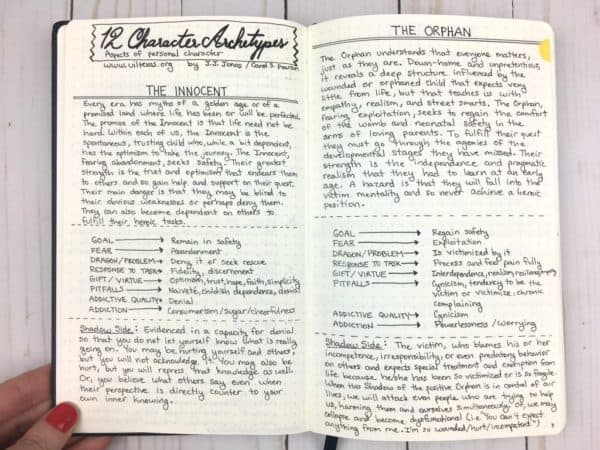 12 Character Archetypes
Aspects of personal character
www.uiltexas.org by J.J. Jonas / Carol S. Pearson
THE INNOCENT
Every era has myths of a golden age or of a
promised land where life has been or will be perfected.
The promise of the Innocent is that life need not be
hard. Within each of us, the Innocent is the
spontaneous, trusting child who, while a bit dependent,
has the optimism to take the journey. The Innocent,
fearing abandonment, seeks safety. Their greatest
strength is the trust and optimism that endears them
to others and so gain help and support on their quest.
Their main danger is that they may be blind to
their obvious weaknesses or perhaps deny them.
They can also become dependent on others to
fulfill their heroic tasks.
GOAL → Remain in safety
FEAR → Abandonment
DRAGON/PROBLEM → Deny it or seek rescue
RESPONSE TO TASK → Fidelity, discernment
GIFT/VIRTUE → Optimism, trust, hope, faith, simplicity
PITFALLS → Naivete, childish dependence, denial
ADDICTIVE QUALITY → Denial
ADDICTION → Consumerism/sugar/cheerfulness
Shadow Side: Evidenced in a capacity for denial
so that you do not let yourself know what is really
going on. You may be hurting yourself and others,
but you will not acknowledge it. You may also be
hurt, but you will repress that knowledge as well.
Or, you believe what others say even when
their perspective is directly counter to your
own inner knowing.
THE ORPHAN
The Orphan understands that everyone matters,
just as they are. Down-home and unpretentious,
it reveals a deep structure influenced by the
wounded or orphaned child that expects very
little from life, but that teaches us with
empathy, realism, and street smarts. The Orphan,
fearing exploitation, seeks to regain the comfort
of the womb and neonatal safety in the
arms of loving parents. To fulfill their quest
they must go through the agonies of the
developmental stages they have missed. Their
strength is the independence and pragmatic
realism that they had to learn at an early
age. A hazard is that they will fall into the
victim mentality and so never achieve a heroic
position.
GOAL → Regain safety
FEAR → Exploitation
DRAGON/PROBLEM → Is victimized by it
RESPONSE TO TASK → Process and feel pain fully
GIFT/VIRTUE → Interdependence, realism,
PITFALLS → Cynicism, tendency to be the
victim or victimize, chronic
complaining
ADDICTIVE QUALITY → Cynicism
ADDICTION → Powerlessness/Worrying
Shadow Side: The victim, who blames his or her
incompetence, irresponsibility, or even predatory behavior
on others and expects special treatment and exemption from
life because he/she has been so victimized or is so fragile.
When this Shadow of the positive Orphan is in control of our
lives, we will attack even people who are trying to help
us, harming them and ourselves simultaneously. Or, we may
collapse and become dysfunctional (i.e. "You can't expect
anything from me. I'm so wounded/hurt/incompetent.")